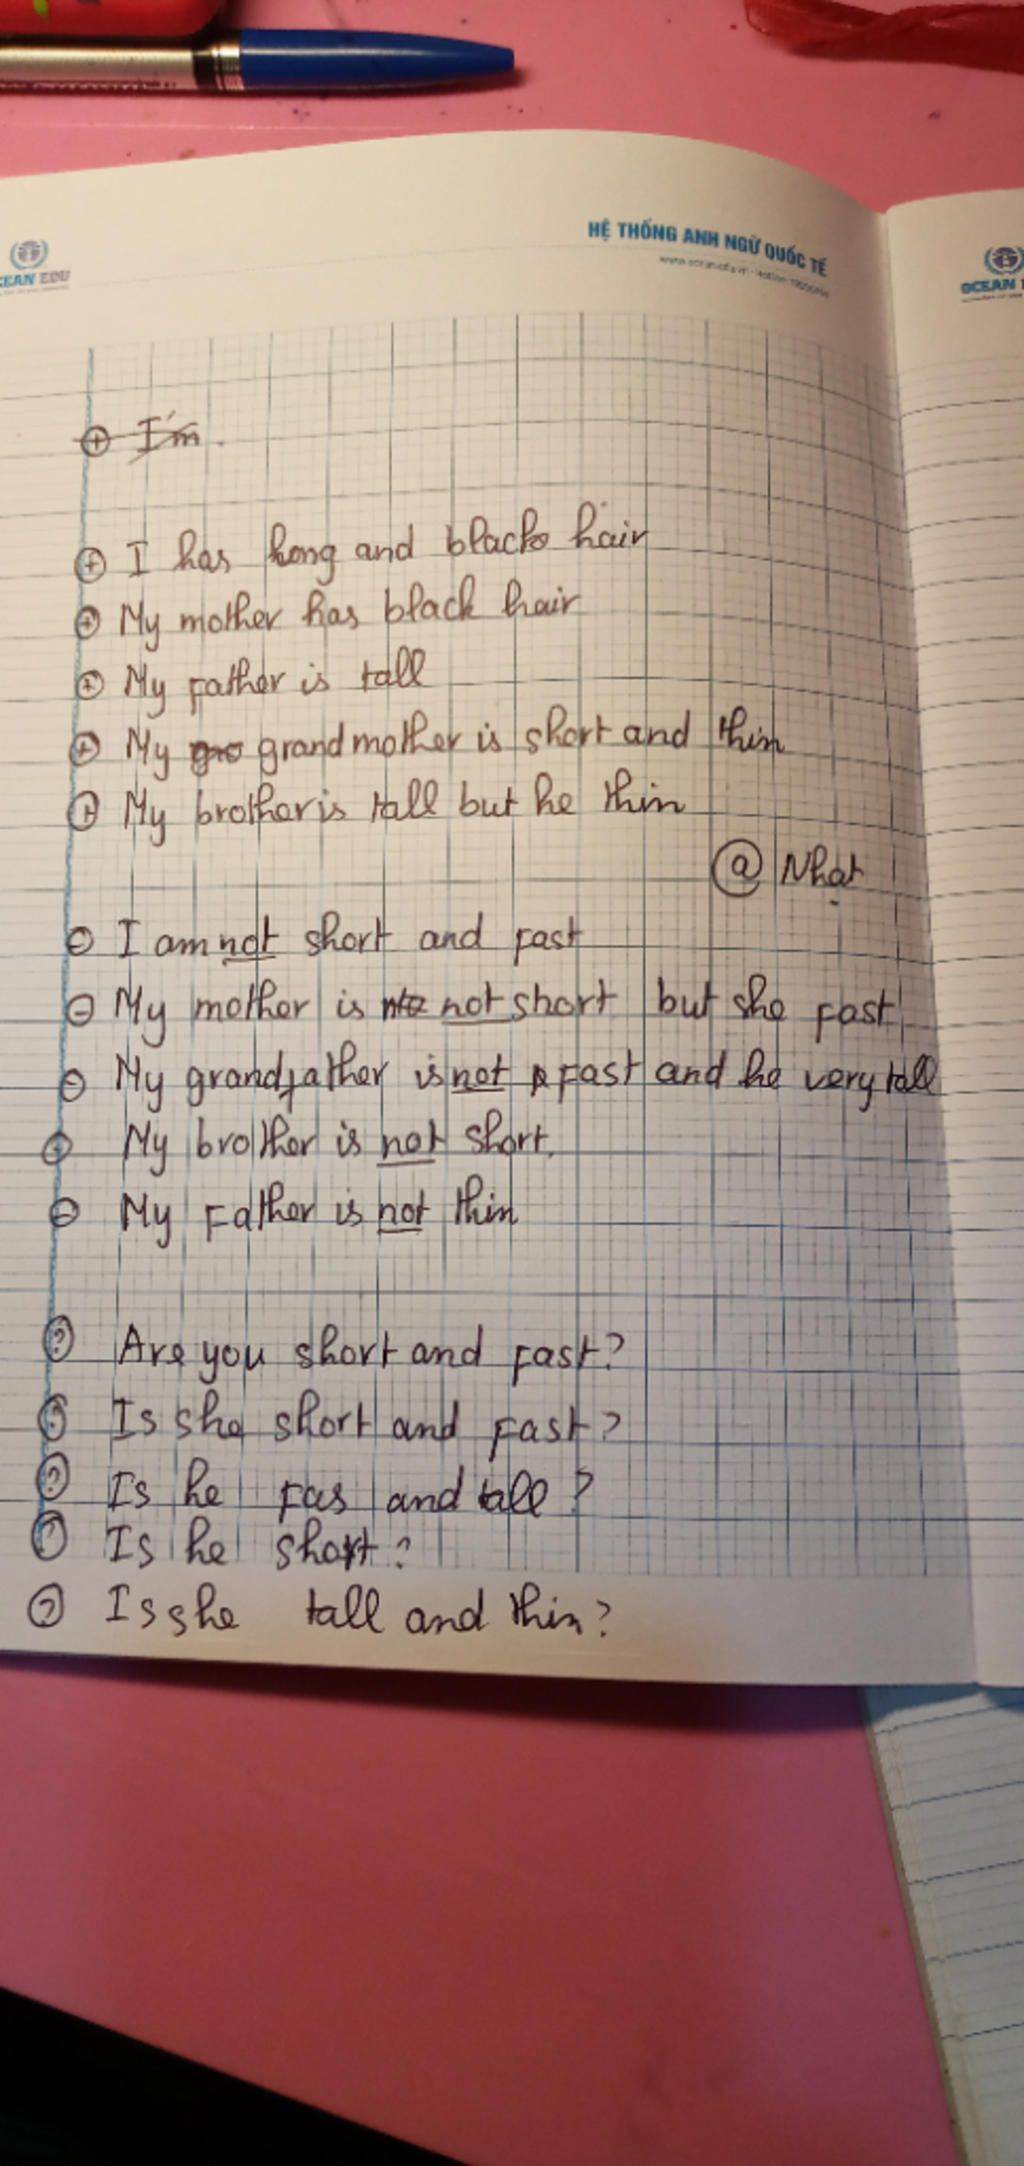 CEAN EDU
HỆ THỐNG ANH NGỮ QUỐC TẾ
OCEAN
⊕ I'm.
⊕ I has long and black hair
⊕ My mother has black hair
⊕ My father is tall
⊕ My grandmother is short and thin
⊕ My brother is tall but he thin
@ Nhật
⊖ I am not short and fast
⊖ My mother is not short but she fast
⊖ My grandfather is not fast and he very tall
⊕ My brother is not short.
⊖ My Father is not thin
? Are you short and fast?
? Is she short and fast?
? Is he fas and tall?
? Is he short?
? Is she tall and thin?